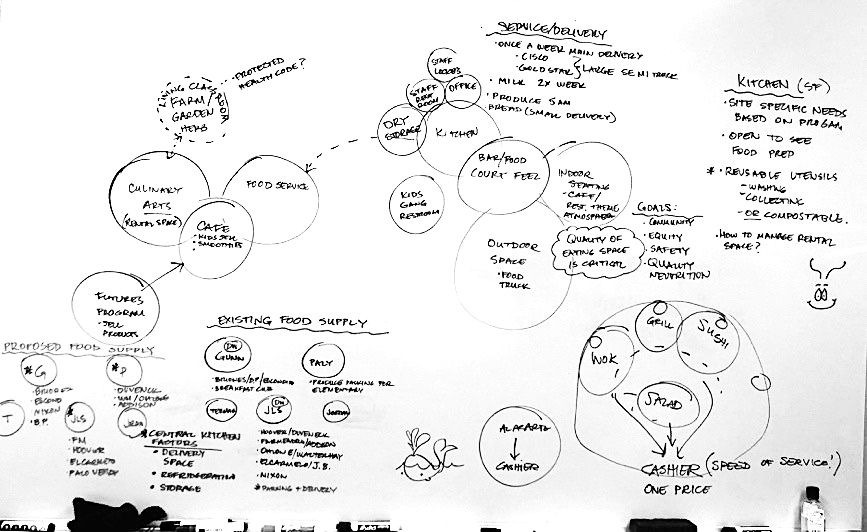 SERVICE/DELIVERY
• ONCE A WEEK MAIN DELIVERY
• CISCO
• GOLDSTAR
LARGE SEMI TRUCK
• MILK 2X WEEK
• PRODUCE 5AM
BREAD (SMALL DELIVERY)
KITCHEN (SF)
• SITE SPECIFIC NEEDS
BASED ON PROGRAM
• OPEN TO SEE
FOOD PREP
* REUSABLE UTENSILS
- WASHING
- COLLECTING
- OR COMPOSTABLE.
• HOW TO MANAGE RENTAL
SPACE?
• PROTECTED
HEALTH CODE?
LIVING CLASSROOM
FARM/
GARDEN
HERB
STAFF
LOCKERS
STAFF
REST
ROOM
OFFICE
DRY
STORAGE
KITCHEN
KIDS
GANG
RESTROOM
BAR/FOOD
COURT FEEL
INDOOR
SEATING
- CAFE/
REST. THEME
ATMOSPHERE
OUTDOOR
SPACE
• FOOD
TRUCK
QUALITY OF
EATING SPACE
IS CRITICAL
GOALS:
• COMMUNITY
• EQUITY
• SAFETY
• QUALITY
NUTRITION
CULINARY
ARTS
(RENTAL SPACE)
FOOD SERVICE
CAFE
• SMOOTHIES
FUTURES
PROGRAM
• SELL
PRODUCTS
PROPOSED FOOD SUPPLY
*G
• BRIONES
• ESCOND
• NIXON
• B.P.
*P
• DUVENECK
• ADDISON
T
*JLS
• FM
• HOOVER
• EL CARMELO
• PALO VERDE
JORDAN
*CENTRAL KITCHEN
FACTORS
• DELIVERY
SPACE
• REFRIGERATION
• STORAGE
EXISTING FOOD SUPPLY
GUNN
• BRIONES/BP/ESCONDIDO
• BREAKFAST CLUB
PALY
• PRODUCE PACKING FOR
ELEMENTARY
TERMAN
JLS
JORDAN
• HOOVER/DUVENECK
• OHLONE/WALTER HAY
• EL CARMELO/J.B.
• NIXON
* PARKING + DELIVERY
ALACARTE
CASHIER
WOK
GRILL
SUSHI
SALAD
CASHIER (SPEED OF SERVICE!)
ONE PRICE